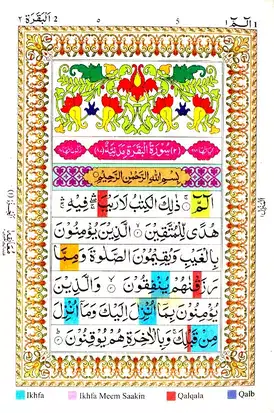 الٓمّٓ ١
٢ اَلْبَقَرَة ٢
سُوْرَةُ الْبَقَرَةِ مَدَنِيَّةٌ
بِسْمِ اللّٰهِ الرَّحْمٰنِ الرَّحِيْمِ
الٓمّٓ ۚ ذٰلِكَ الْكِتٰبُ لَا رَيْبَ ۛ فِيْهِ ۛ
هُدًى لِّلْمُتَّقِيْنَ الَّذِيْنَ يُؤْمِنُوْنَ
بِالْغَيْبِ وَيُقِيْمُوْنَ الصَّلٰوةَ وَمِمَّا
رَزَقْنٰهُمْ يُنْفِقُوْنَ وَالَّذِيْنَ
يُؤْمِنُوْنَ بِمَآ اُنْزِلَ اِلَيْكَ وَمَآ اُنْزِلَ
مِنْ قَبْلِكَ وَبِالْاٰخِرَةِ هُمْ يُوْقِنُوْنَ
Ikhfa Ikhfa Meem Saakin Qalqala Qalb